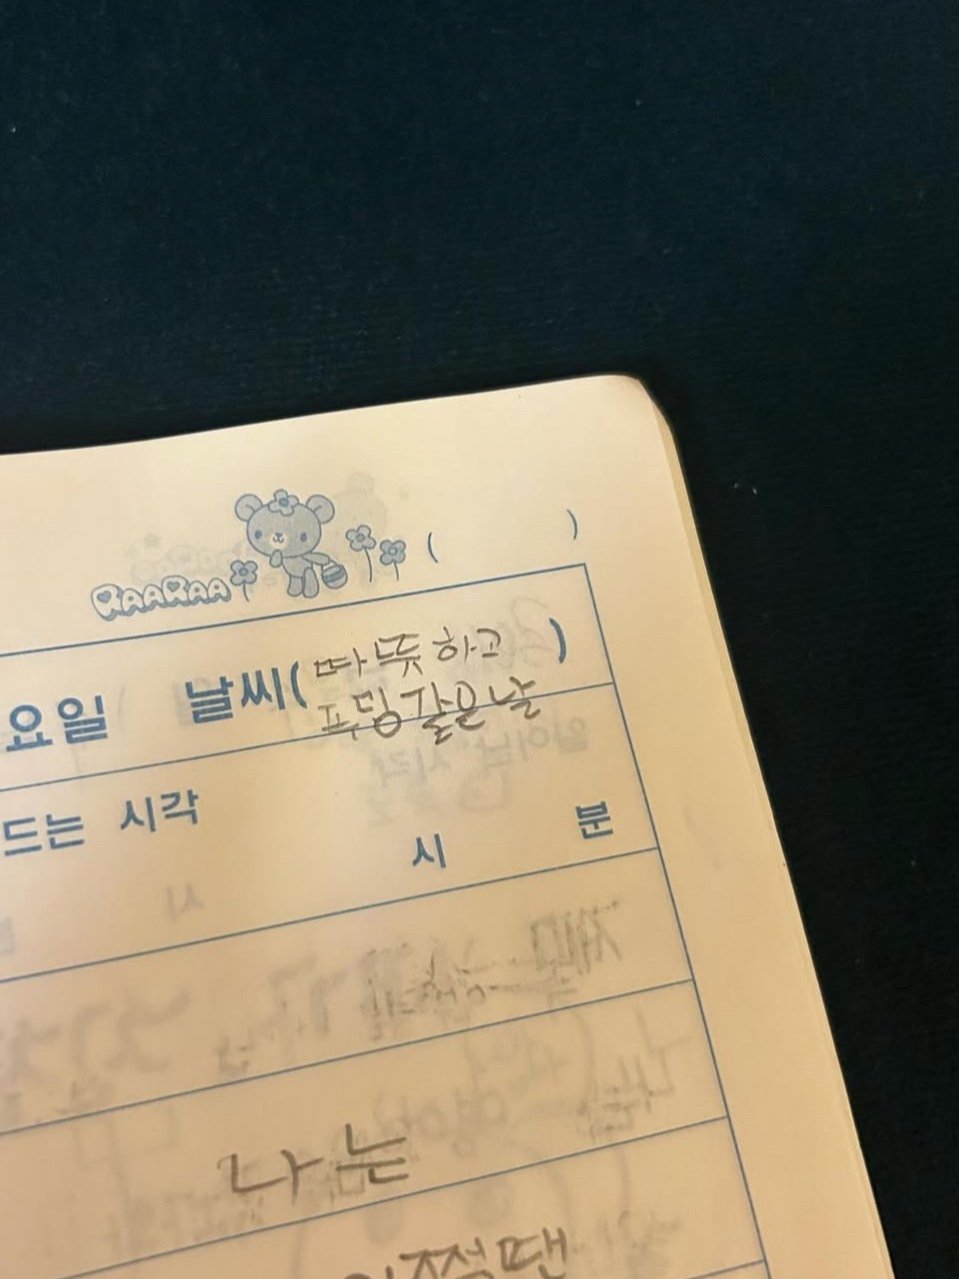 RAARAA ( )
요일 날씨( 따뜻하고 )
푸딩같은날
드는 시각
시 분
나는